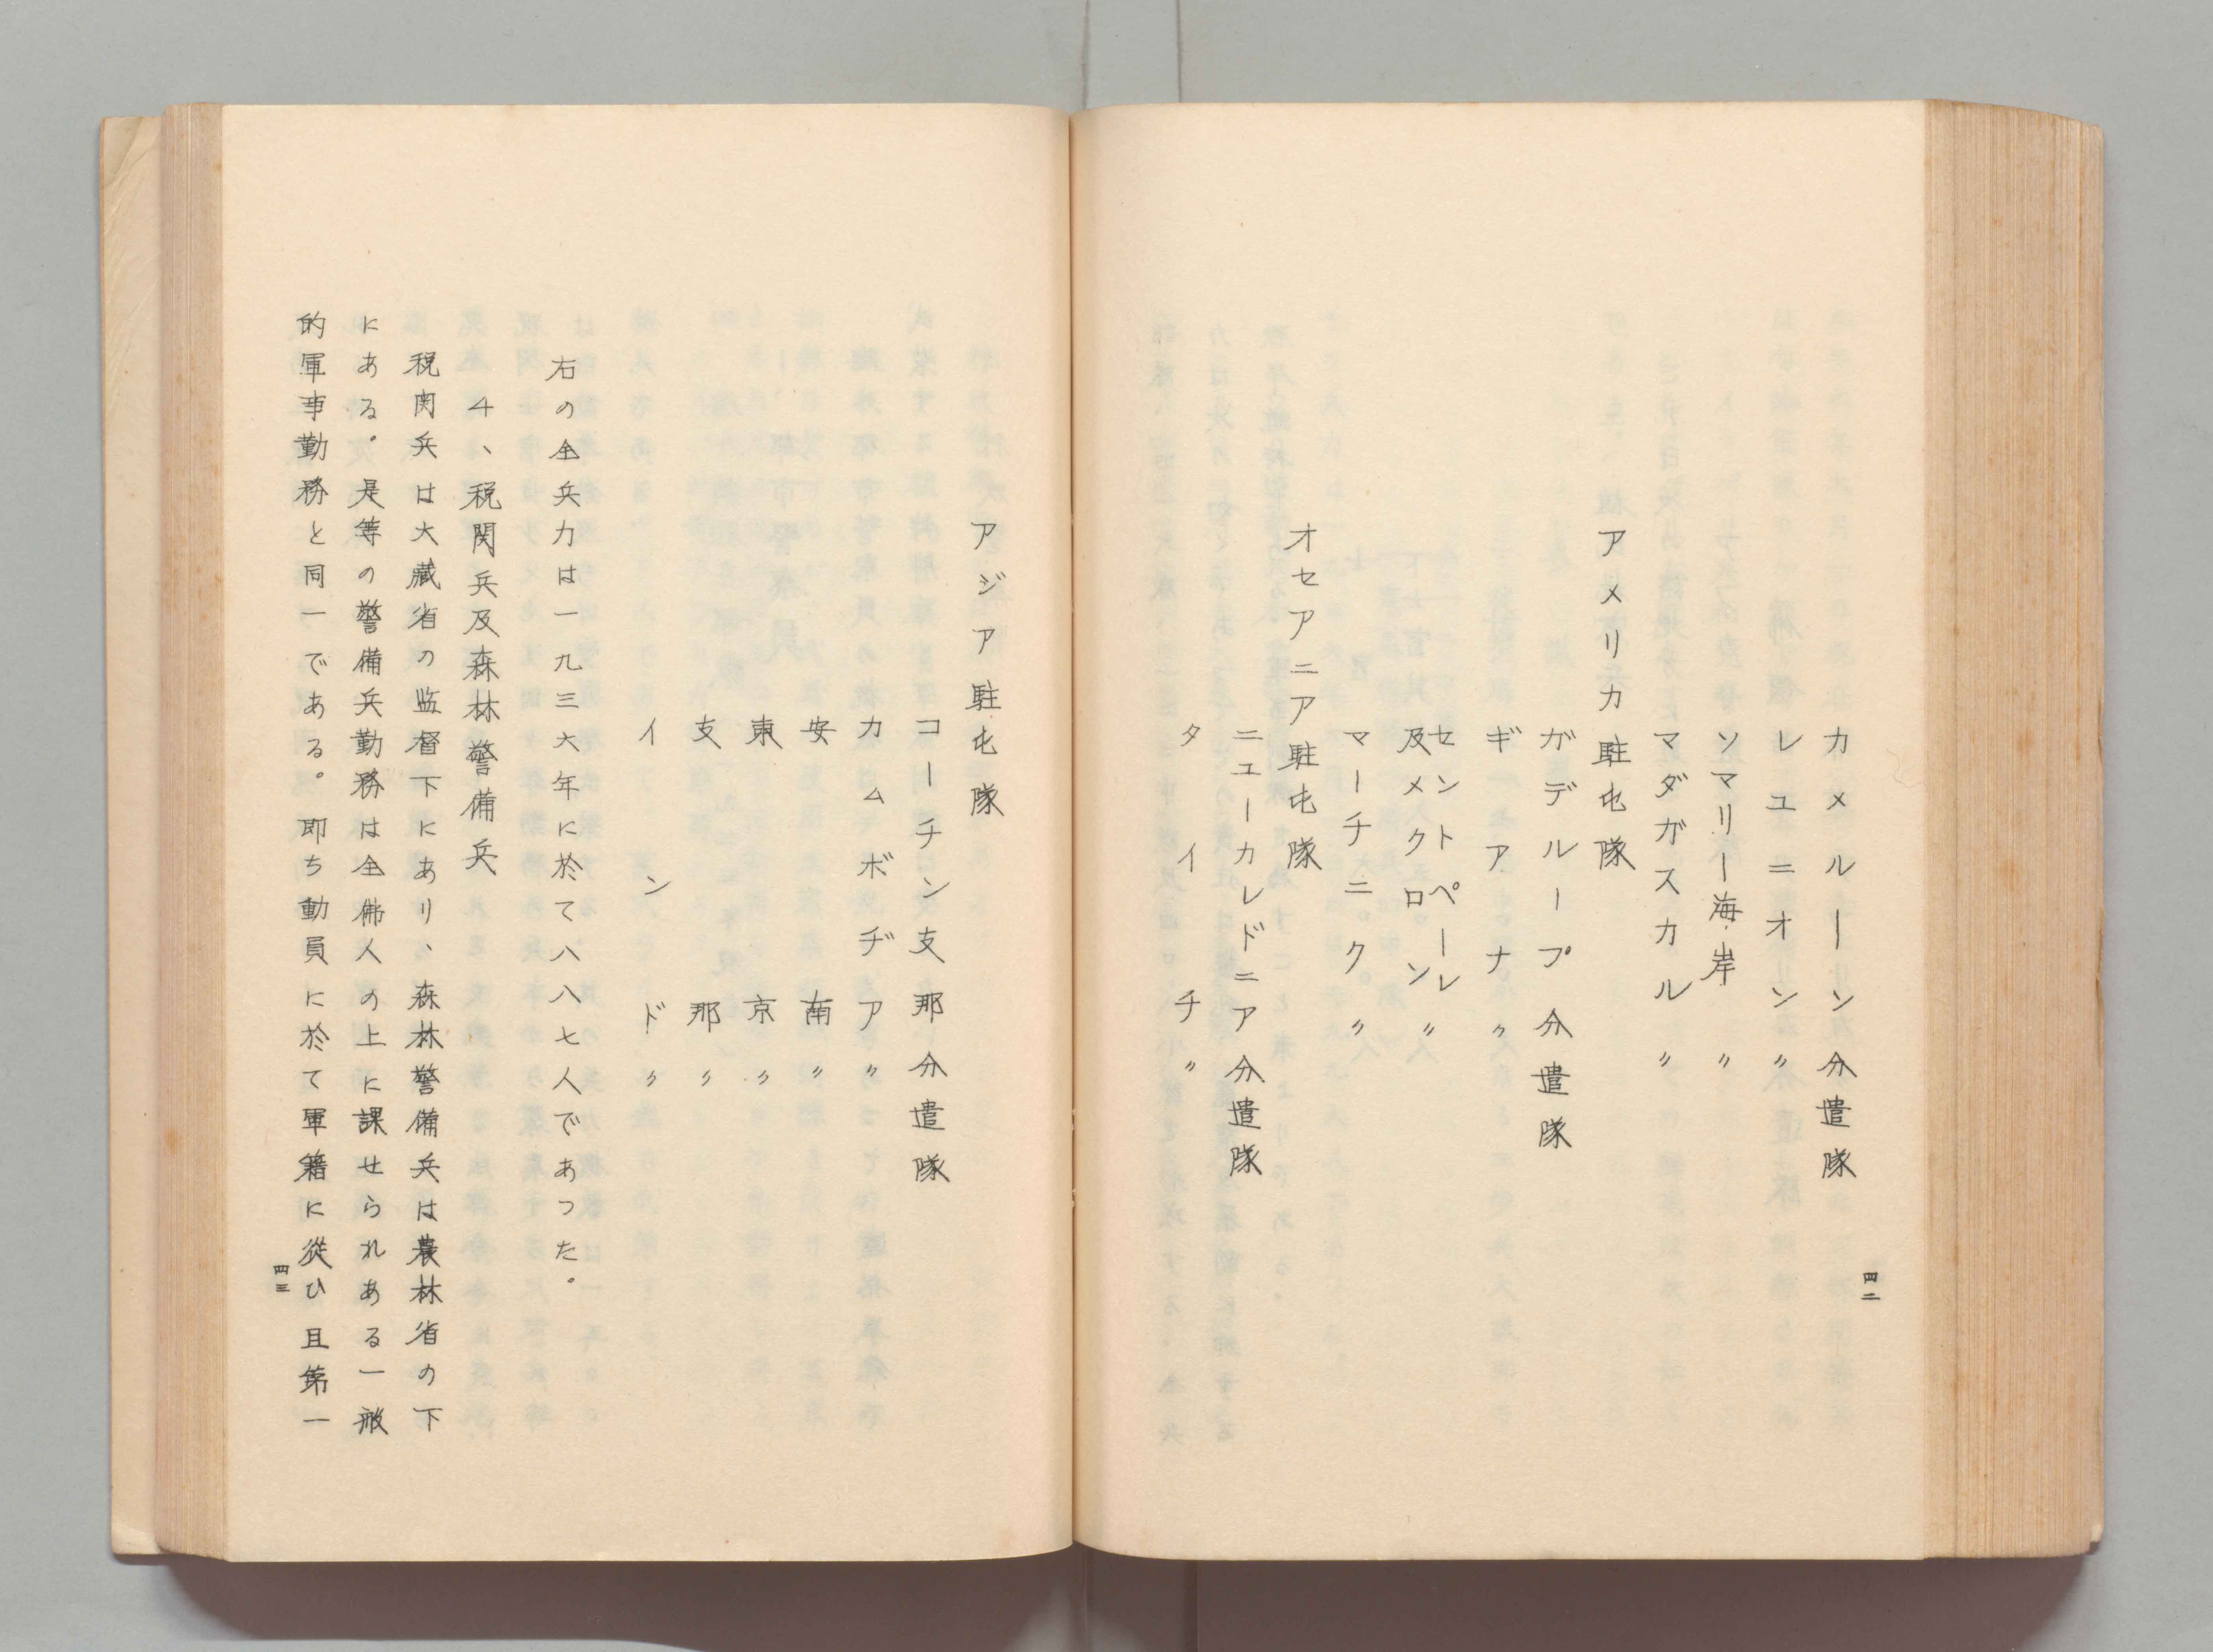 カメルーン分遣隊
レユニオン〃
ソマリー海岸〃
マダガスカル〃
アメリカ駐屯隊
ガデループ分遣隊
ギアナ〃
セントペーレ
及メクロン〃
マーチニク〃
オセアニア駐屯隊
ニューカレドニア分遣隊
タイチ〃
四二
アジア駐屯隊
コーチン支那分遣隊
カムボヂア〃
安南〃
東京〃
支那〃
インド〃
右の全兵力は一九三六年に於て八八七人であった。
4、税関兵及森林警備兵
税関兵は大藏省の監督下にあり、森林警備兵は農林省の下
にある。是等の警備兵勤務は全佛人の上に課せられある一般
的軍事勤務と同一である。即ち動員に於て軍籍に從ひ且第一
四三